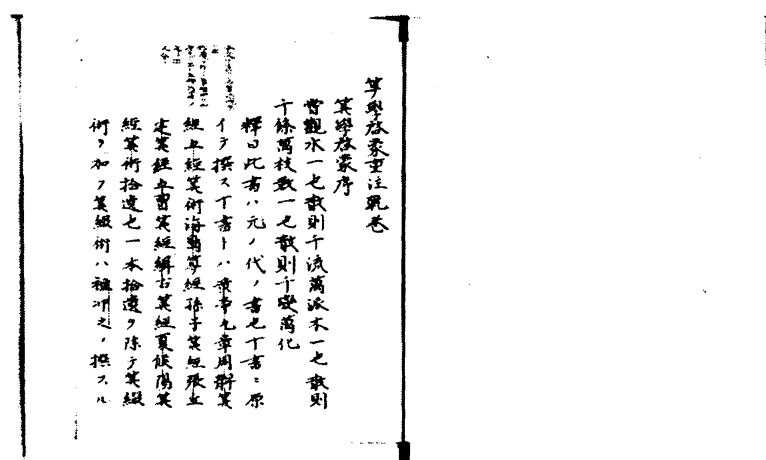 算學啓蒙重注乾巻
算學啓蒙序
嘗觀水一也散則千流萬派木一也散則
千條萬枝数一也散則千變萬化
釋曰此書ハ元ノ代ノ書也丁書ニ原
イテ撰ス丁書トハ黄帝九章周髀算
經五經算術海島算經孫子算經張丘
建算經五曹算經緝古算經夏侯陽算
經算術拾遺也一本拾遺ヲ除テ算綴
術ヲ加フ算綴術ハ祖冲之ノ撰スル